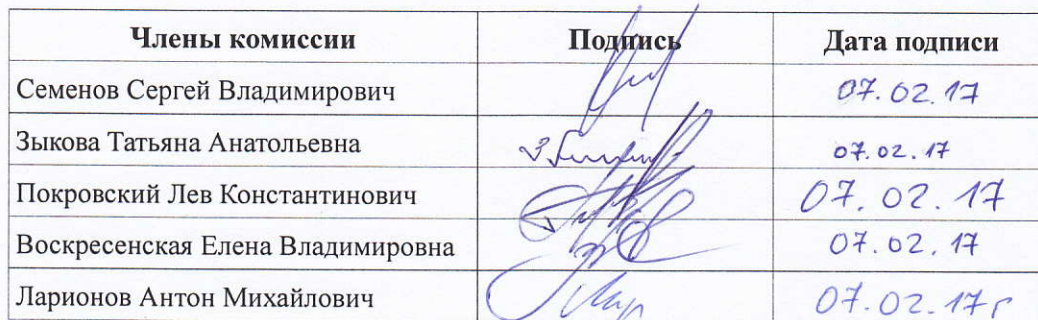 Члены комиссии Подпись Дата подписи
Семенов Сергей Владимирович 07.02.17
Зыкова Татьяна Анатольевна 07.02.17
Покровский Лев Константинович 07.02.17
Воскресенская Елена Владимировна 07.02.17
Ларионов Антон Михайлович 07.02.17г